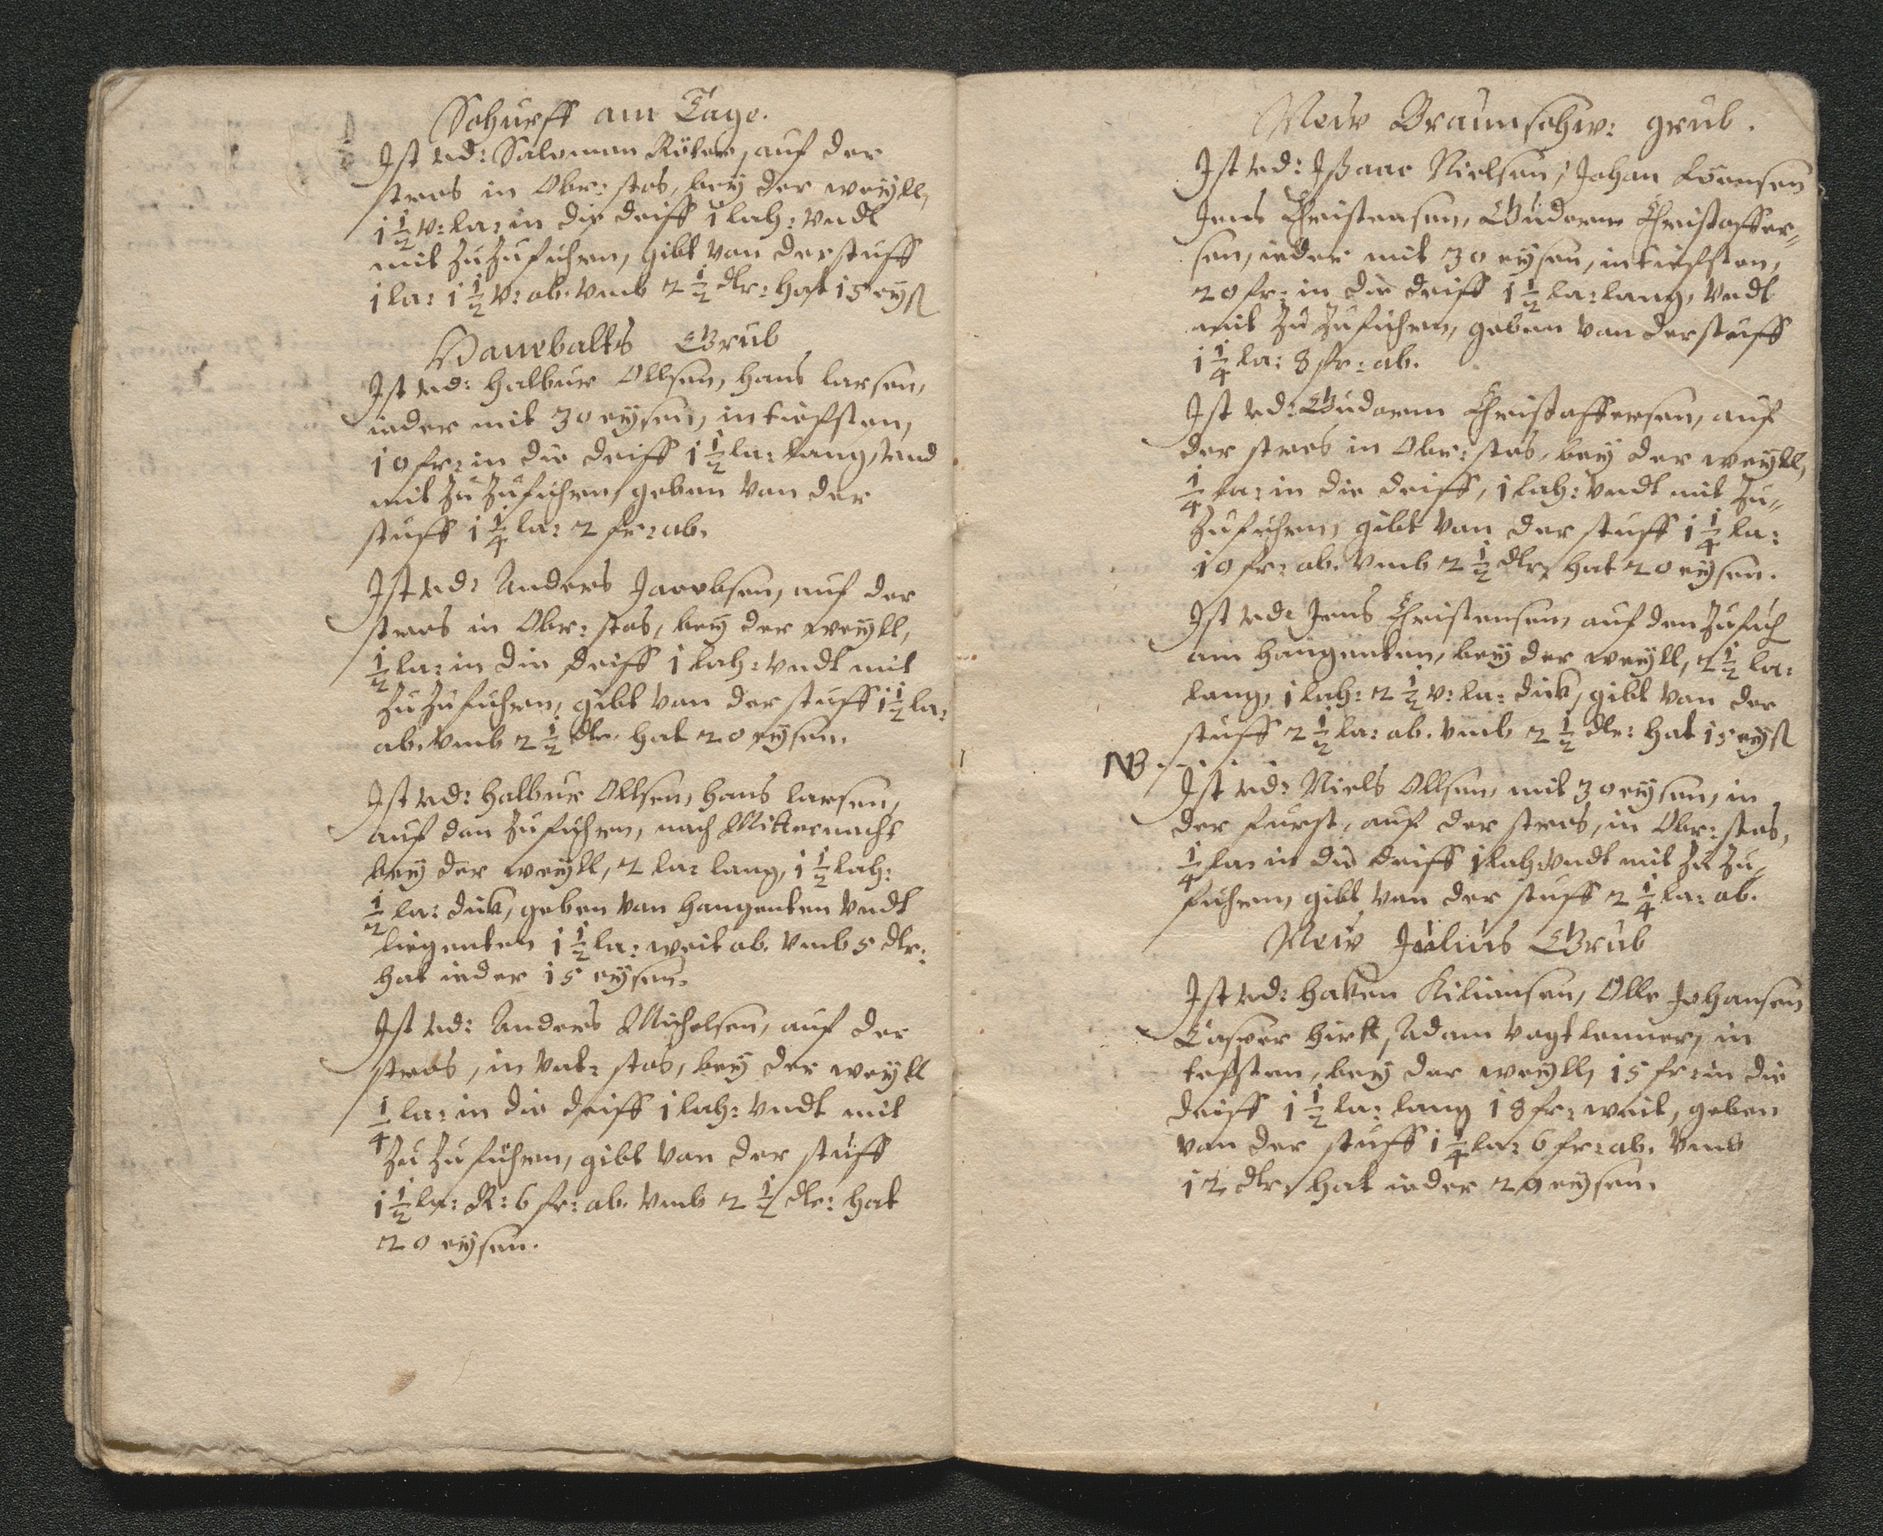 Schurff am Tage.
Ist ved: Salomon Röler, auf der
stros in Obr: stos, bey der weyll,
1 1/2 v: la: in die deiff 1 lah: vndt
mit zu Zufuhren, gibt von der stuff
1 la: 1 1/2 v: ab. vmb 2 1/2 dlr: hat 15 eyß
Hanebalts Grub
Ist ved: Halbur Ollsen, Hans Larsen,
ieder mit 30 eysen, in tiefsten,
10 fr: in die deiff 1 1/2 la: lang, und
mit zu Zufuhren, geben von der
stuff 1 1/4 la: 2 fr: ab.
Ist ved: Anders Jacobsen, auf der
stros in Obr: stos, bey der weyll,
1/2 la: in die deiff 1 lah: vndt mit
zu Zufuhren, gibt von der stuff 1 1/2 la:
ab. vmb 2 1/2 dlr. hat 20 eysen.
Ist ved: Halbur Ollsen, Hans Larsen,
auf den Zufuhren, nach Mitternacht
bey der weyll, 2 la: lang, 1 1/2 lah:
1/2 la: dick, geben von hangenten vndt
liegenten 1 1/2 la: weit ab. vmb 5 dlr:
hat ieder 15 eysen.
Ist ved: Anders Michelsen, auf der
stros, in vnt: stos, bey der weyll
1/4 la: in die deiff 1 lah: vndt mit
zu Zufuhren, gibt von der stuff
1 1/2 la: R: 6 fr: ab. vmb 2 1/2 dlr: hat
20 eysen.
New Braunschw: grub.
Ist ved: Ißaac Nielsen, Johan Lorensen
Jens Christensen, Gudorm Christoffer-
sen, ieder mit 30 eysen, in tiefsten,
20 fr: in die deiff 1 1/2 la: lang, vndt
mit zu Zufuhren, geben von der stuff
1 1/4 la: 8 fr: ab.
Ist ved: Gudorm Christoffersen, auf
der stros in Obr: stos, bey der weyll,
1/4 la: in die deiff, 1 lah: vndt mit zu-
Zufuhren, gibt von der stuff 1 1/4 la:
10 fr: ab. vmb 2 1/2 dlr, hat 20 eysen.
Ist ved: Jens Christensen, auf den Zufuh
am hangenten, bey der weyll, 2 1/2 la:
lang, 1 lah: 2 1/2 v: la: dick, gibt von der
stuff 2 1/2 la: ab. vmb 2 1/2 dlr: hat 15 eyß
NB.
Ist ved: Niels Ollsen, mit 30 eysen, in
der furst, auf der stros, in Obr: stos,
1/4 la: in die deiff 1 lah: vndt mit zu Zu-
fuhren, gibt von der stuff 2 1/4 la: ab.
New Julius Grub
Ist ved: Haken Kiliansen, Olle Johansen
Casper Hirtt, Adam Vogt lenner, in
tefsten, bey der weyll, 15 fr: in die
deiff 1 1/2 la: lang 18 fr: weit, geben
von der stuff 1 1/4 la: 6 fr: ab. vmb
12 dlr: hat ieder 20 eysen.